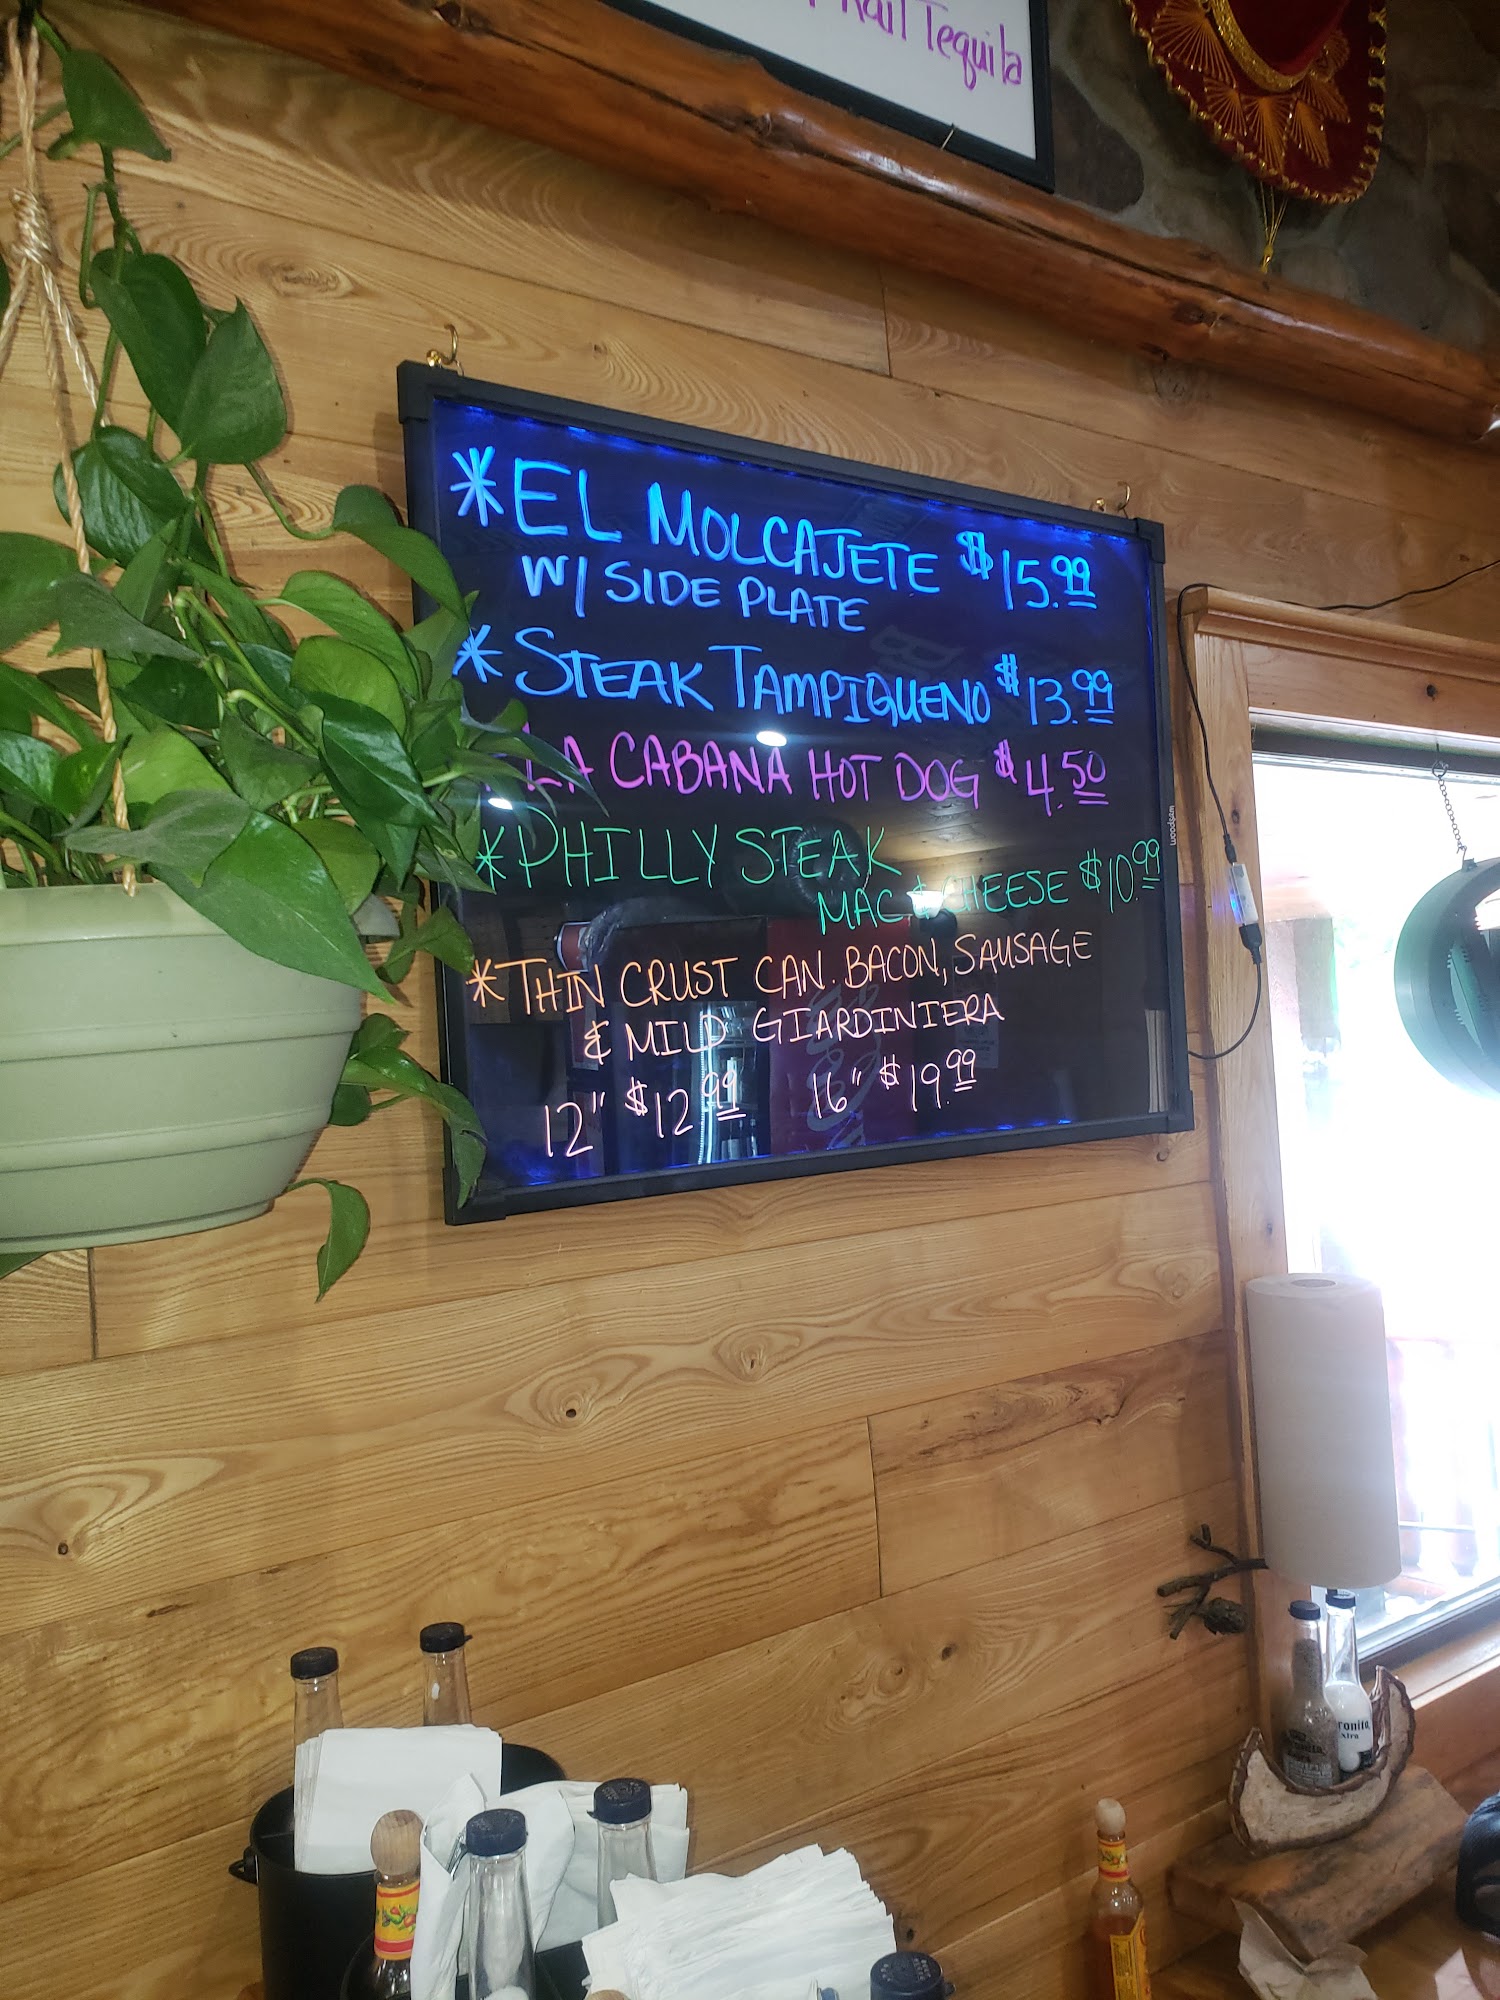 Rail Tequila
*EL MOLCAJETE $15.99
W/ SIDE PLATE
*STEAK TAMPIQUENO $13.99
LA CABANA HOT DOG $4.50
*PHILLY STEAK
MAC & CHEESE $10.99
*THIN CRUST CAN. BACON, SAUSAGE
& MILD GIARDINIERA
12" $12.99 16" $19.99
woodsam